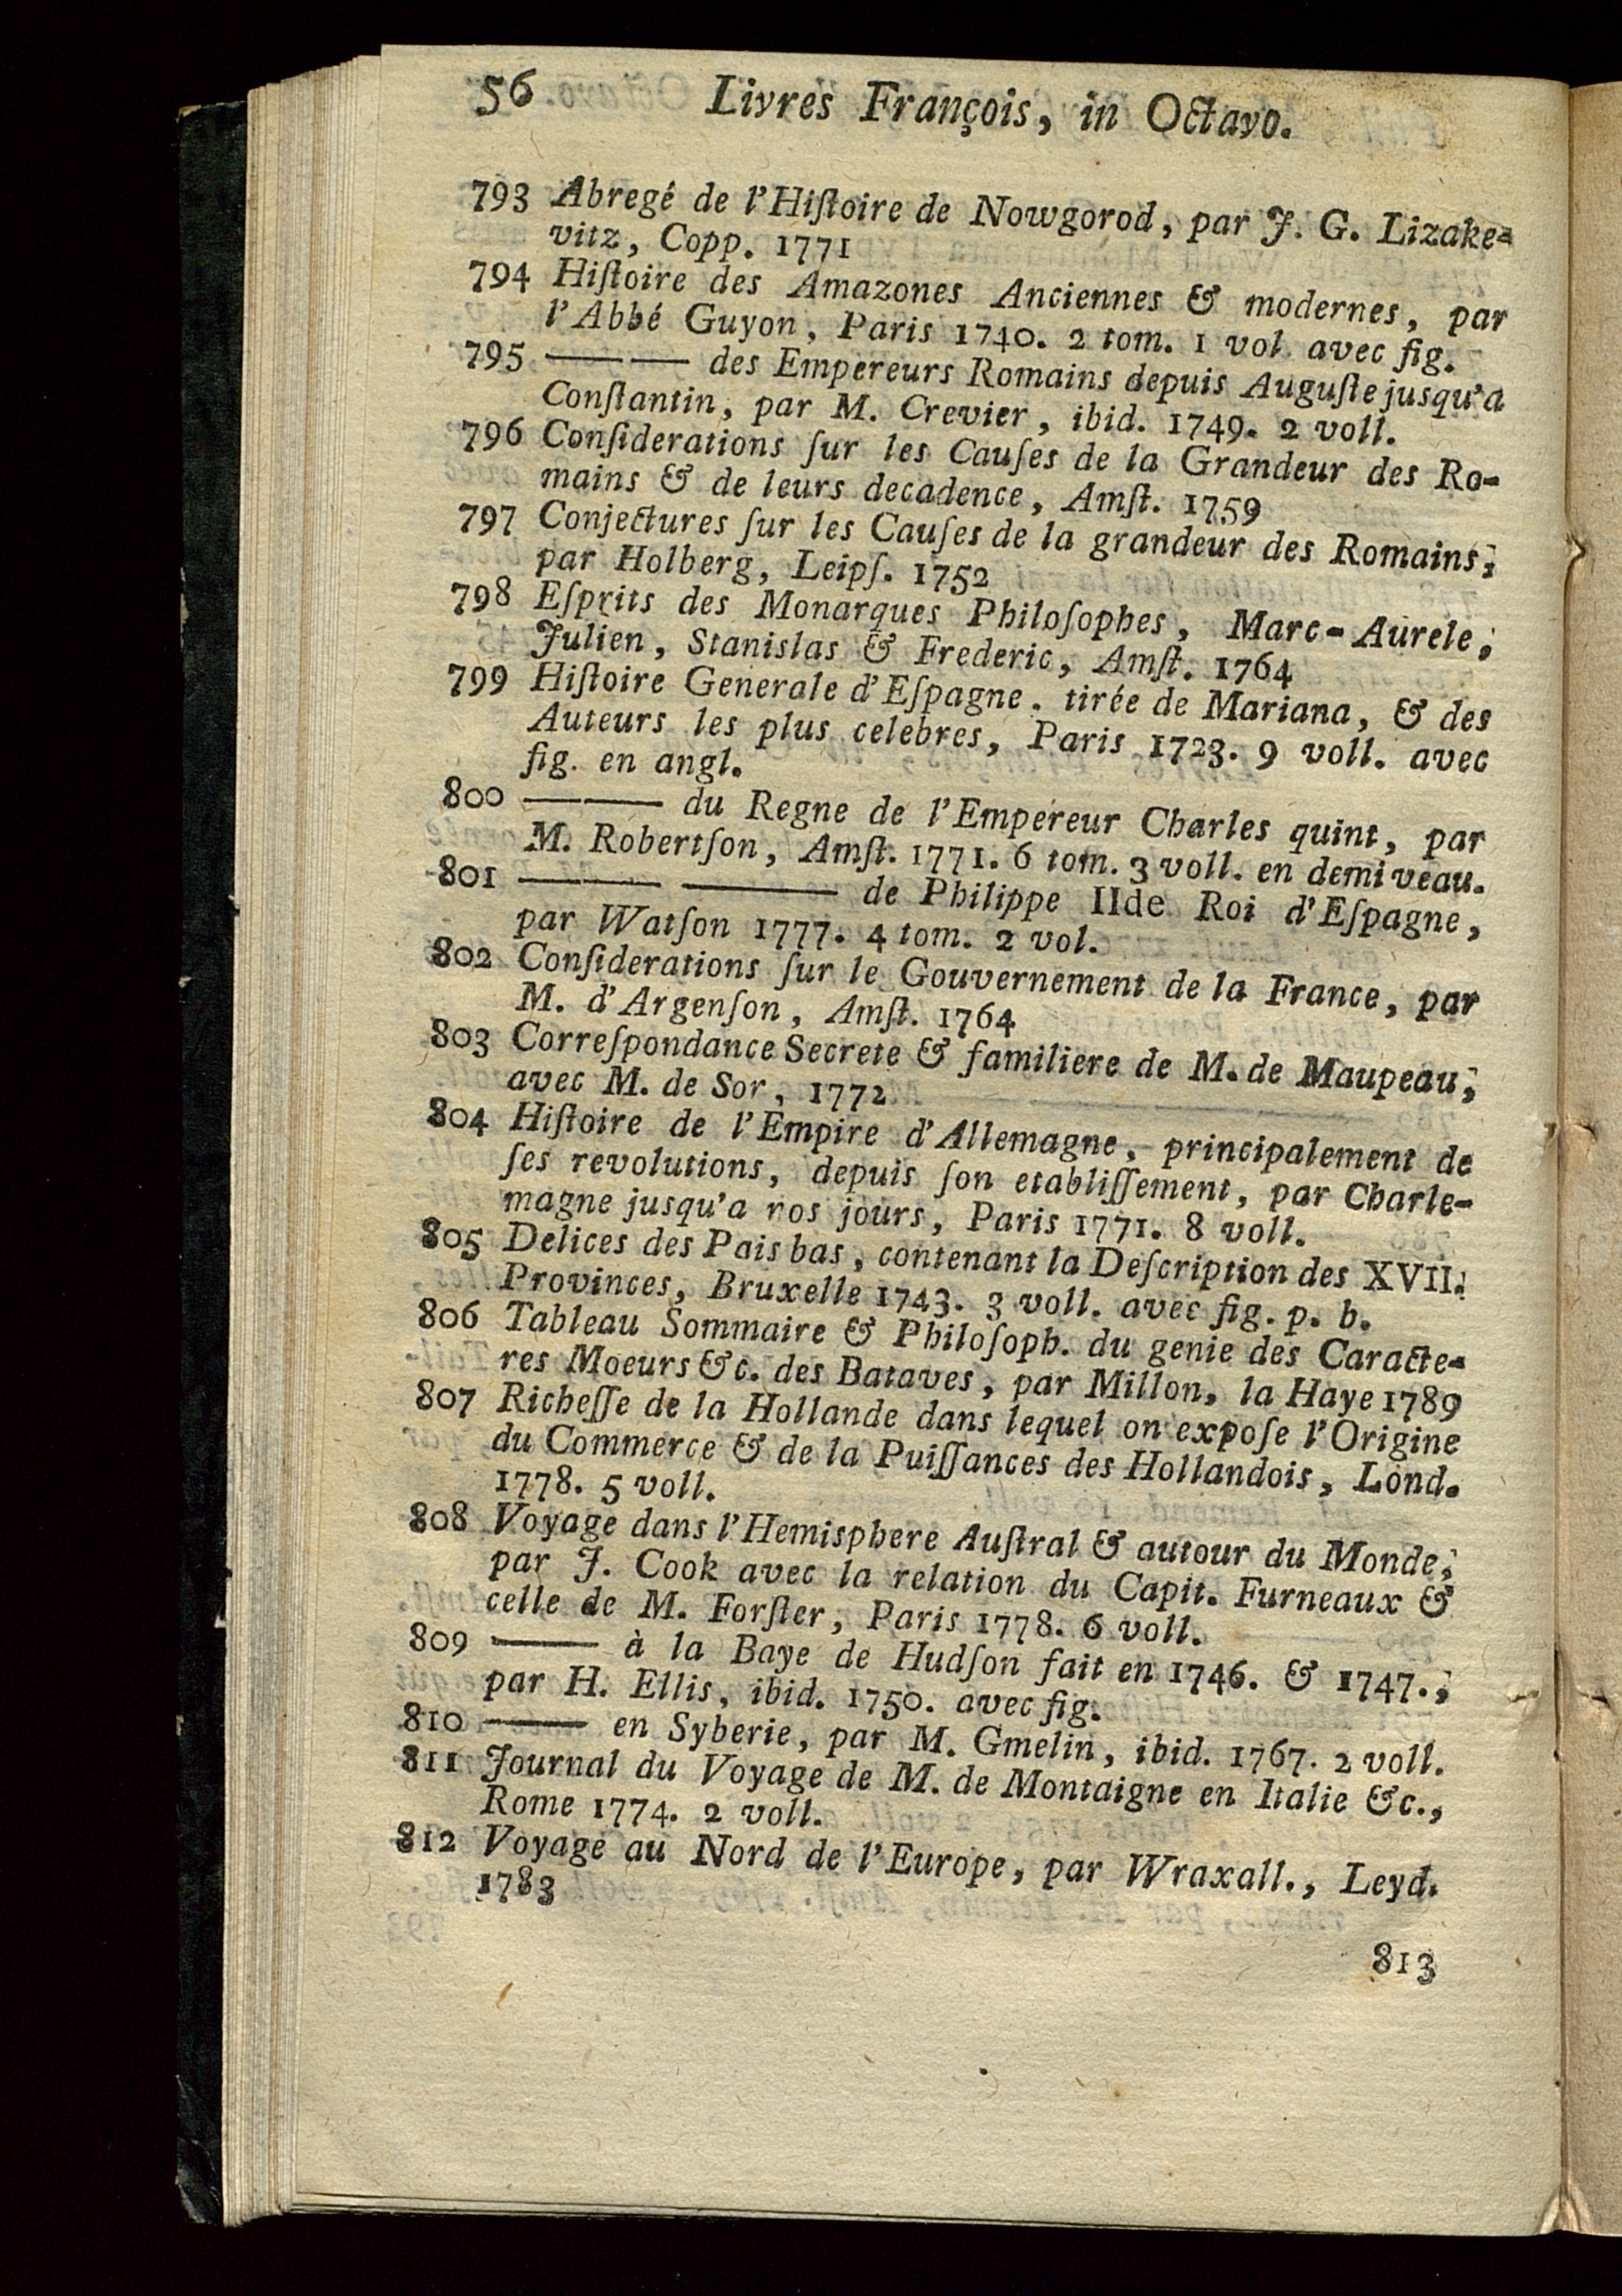 56 Livres François, in Octavo.
793 Abregé de l'Hiſtoire de Nowgorod, par J. G. Lizake-
vitz, Copp. 1771
794 Hiſtoire des Amazones Anciennes & modernes, par
l'Abbé Guyon, Paris 1740. 2 tom. 1 vol avec fig.
795 —— —— des Empereurs Romains depuis Auguſte jusqu'a
Conſtantin, par M. Crevier, ibid. 1749. 2 voll.
796 Conſiderations ſur les Cauſes de la Grandeur des Ro-
mains & de leurs decadence, Amſt. 1759
797 Conjectures ſur les Cauſes de la grandeur des Romains,
par Holberg, Leipſ. 1752
798 Eſprits des Monarques Philoſophes, Marc-Aurele,
Julien, Stanislas & Frederic, Amſt. 1764
799 Hiſtoire Generale d'Eſpagne. tirée de Mariana, & des
Auteurs les plus celebres, Paris 1723. 9 voll. avec
fig. en angl.
800 —— —— du Regne de l'Empereur Charles quint, par
M. Robertſon, Amſt. 1771. 6 tom. 3 voll. en demi veau.
801 —— —— —— de Philippe IIde Roi d'Eſpagne,
par Watſon 1777. 4 tom. 2 vol.
802 Conſiderations ſur le Gouvernement de la France, par
M. d'Argenſon, Amſt. 1764
803 Correſpondance Secrete & familiere de M. de Maupeau,
avec M. de Sor, 1772
804 Hiſtoire de l'Empire d'Allemagne, principalement de
ſes revolutions, depuis ſon etabliſſement, par Charle-
magne jusqu'a nos jours, Paris 1771. 8 voll.
805 Delices des Pais bas, contenant la Deſcription des XVII.
Provinces, Bruxelle 1743. 3 voll. avec fig. p. b.
806 Tableau Sommaire & Philoſoph. du genie des Caracte-
res Moeurs &c. des Bataves, par Millon, la Haye 1789
807 Richeſſe de la Hollande dans lequel on expoſe l'Origine
du Commerce & de la Puiſſances des Hollandois, Lond.
1778. 5 voll.
808 Voyage dans l'Hemisphere Auſtral & autour du Monde,
par J. Cook avec la relation du Capit. Furneaux &
celle de M. Forſter, Paris 1778. 6 voll.
809 —— à la Baye de Hudſon fait en 1746. & 1747.,
par H. Ellis, ibid. 1750. avec fig.
810 —— en Syberie, par M. Gmelin, ibid. 1767. 2 voll.
811 Journal du Voyage de M. de Montaigne en Italie &c.,
Rome 1774. 2 voll.
812 Voyage au Nord de l'Europe, par Wraxall., Leyd.
1783
813